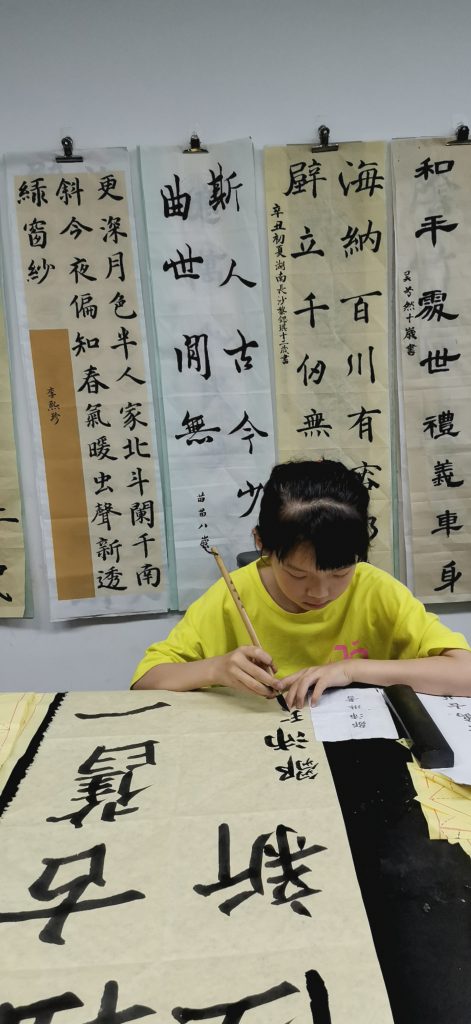 和平處世禮義車身
吳兮然十歲書
海納百川有容
壁立千仞無
辛丑初夏湖南長沙黎鍶琪十二歲書
斯人古今少
曲世間無
苗苗八歲
更深月色半人家北斗闌干南
斜今夜偏知春氣暖虫聲新透
綠窗紗
李熙珍
新
鄒沛
古舊
鄒沛琳書